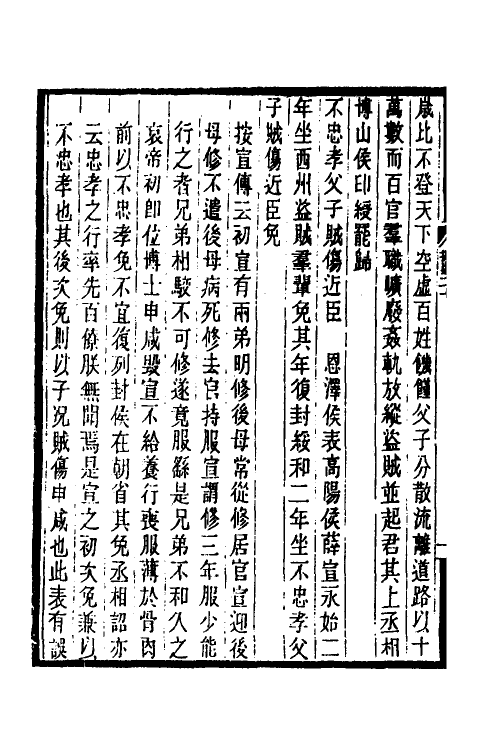 歲比不登天下空虛百姓饑饉父子分散流離道路以十
萬數而百官羣職曠廢姦軌放縱盜賊並起君其上丞相
博山侯印綬罷歸
不忠孝父子賊傷近臣　恩澤侯表高陽侯薛宣永始二
年坐西州盜賊羣輩免其年復封綏和二年坐不忠孝父
子賊傷近臣免
按宣傳云初宣有兩弟明修後母常從修居官宣迎後
母修不遣後母病死修去官持服宣謂修三年服少能
行之者兄弟相駮不可修遂竟服繇是兄弟不和久之
哀帝初卽位博士申咸毀宣不給養行喪服薄於骨肉
前以不忠孝免不宜復列封侯在朝省其免丞相詔亦
云忠孝之行率先百僚朕無聞焉是宣之初次免兼以
不忠孝也其後次免則以子況賊傷申咸也此表有誤